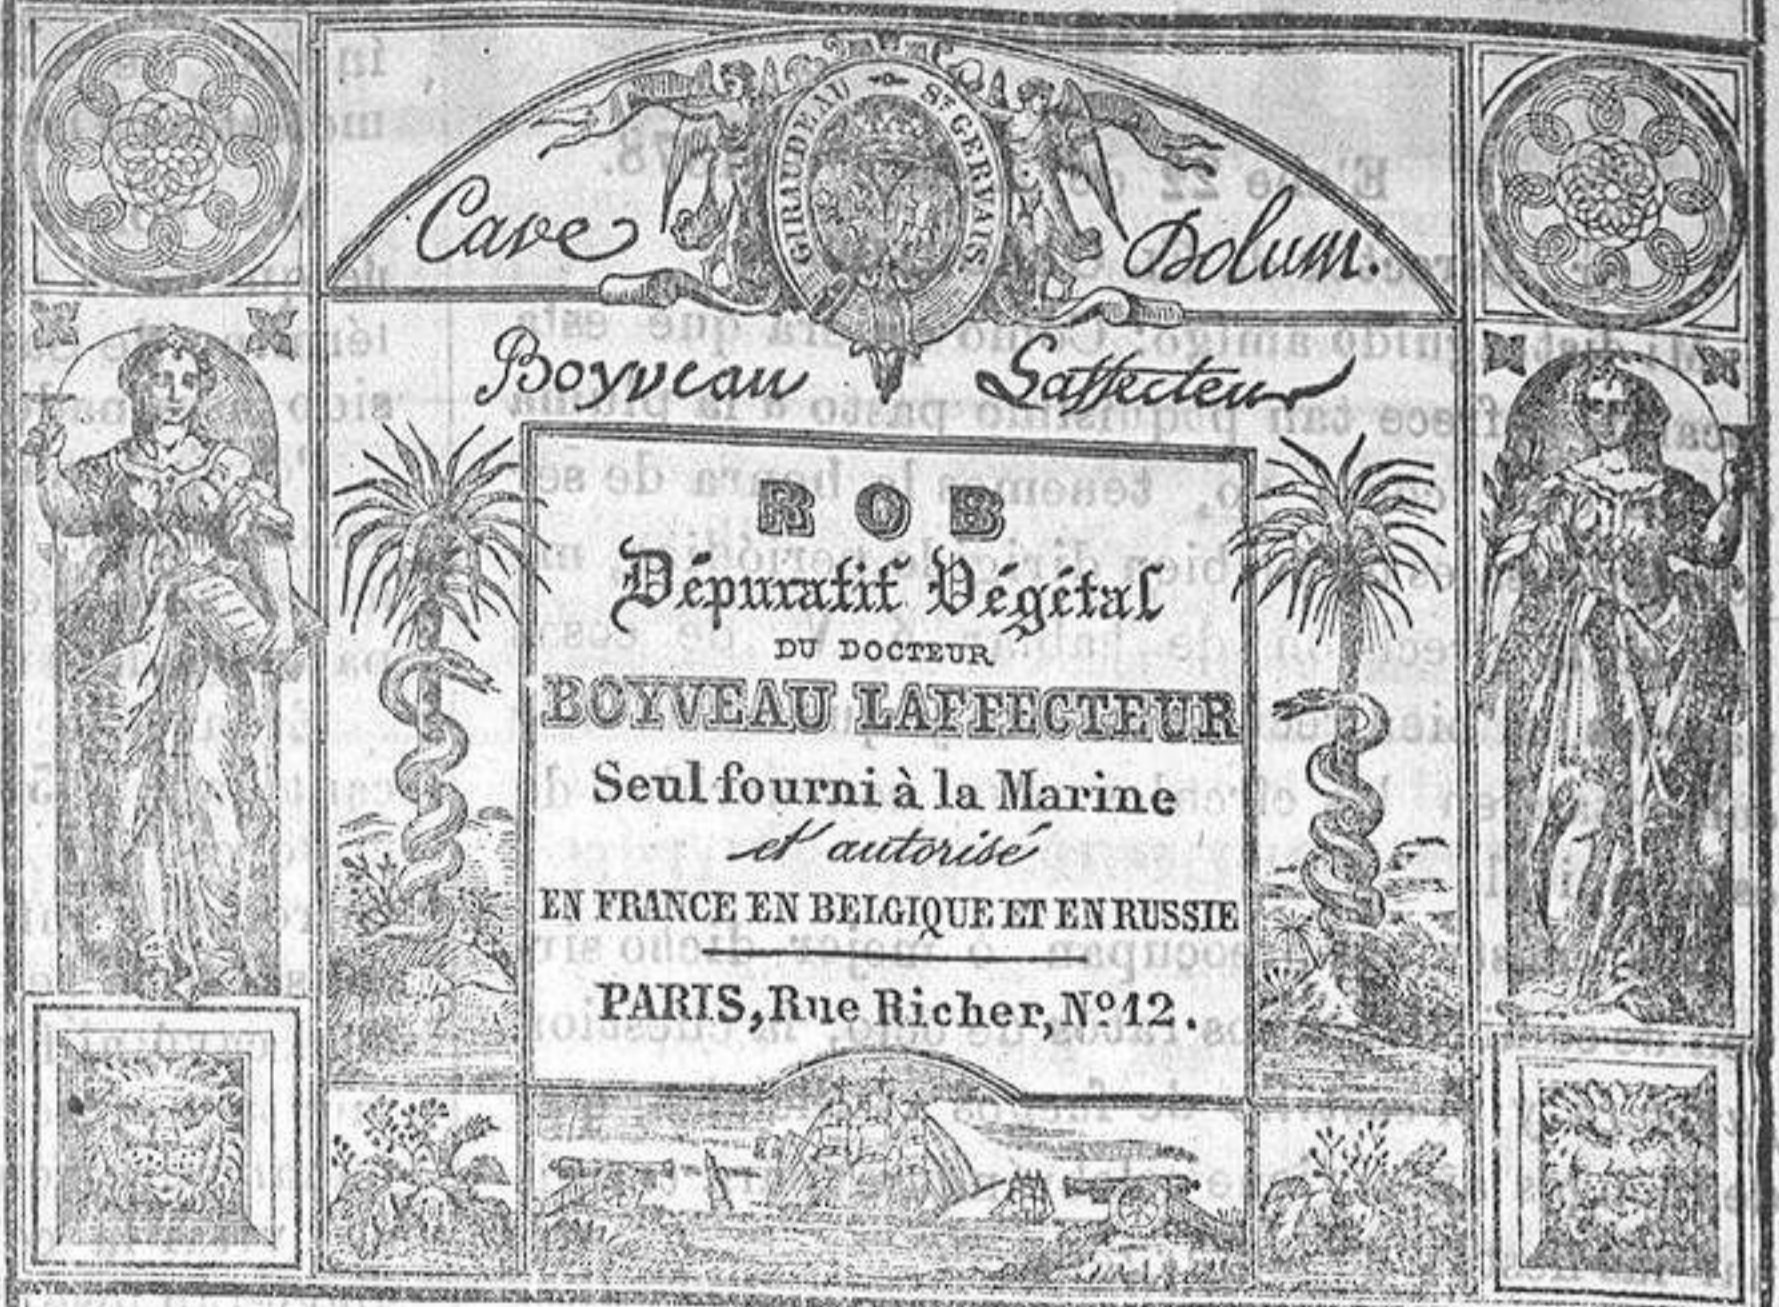 GIRAUDEAU ST GERVAIS
Cave Dolum.
Boyveau Laffecteur
ROB
Dépuratif Végétal
DU DOCTEUR
BOYVEAU LAFFECTEUR
Seul fourni à la Marine
et autorisé
EN FRANCE EN BELGIQUE ET EN RUSSIE
PARIS, Rue Richer, Nº 12.